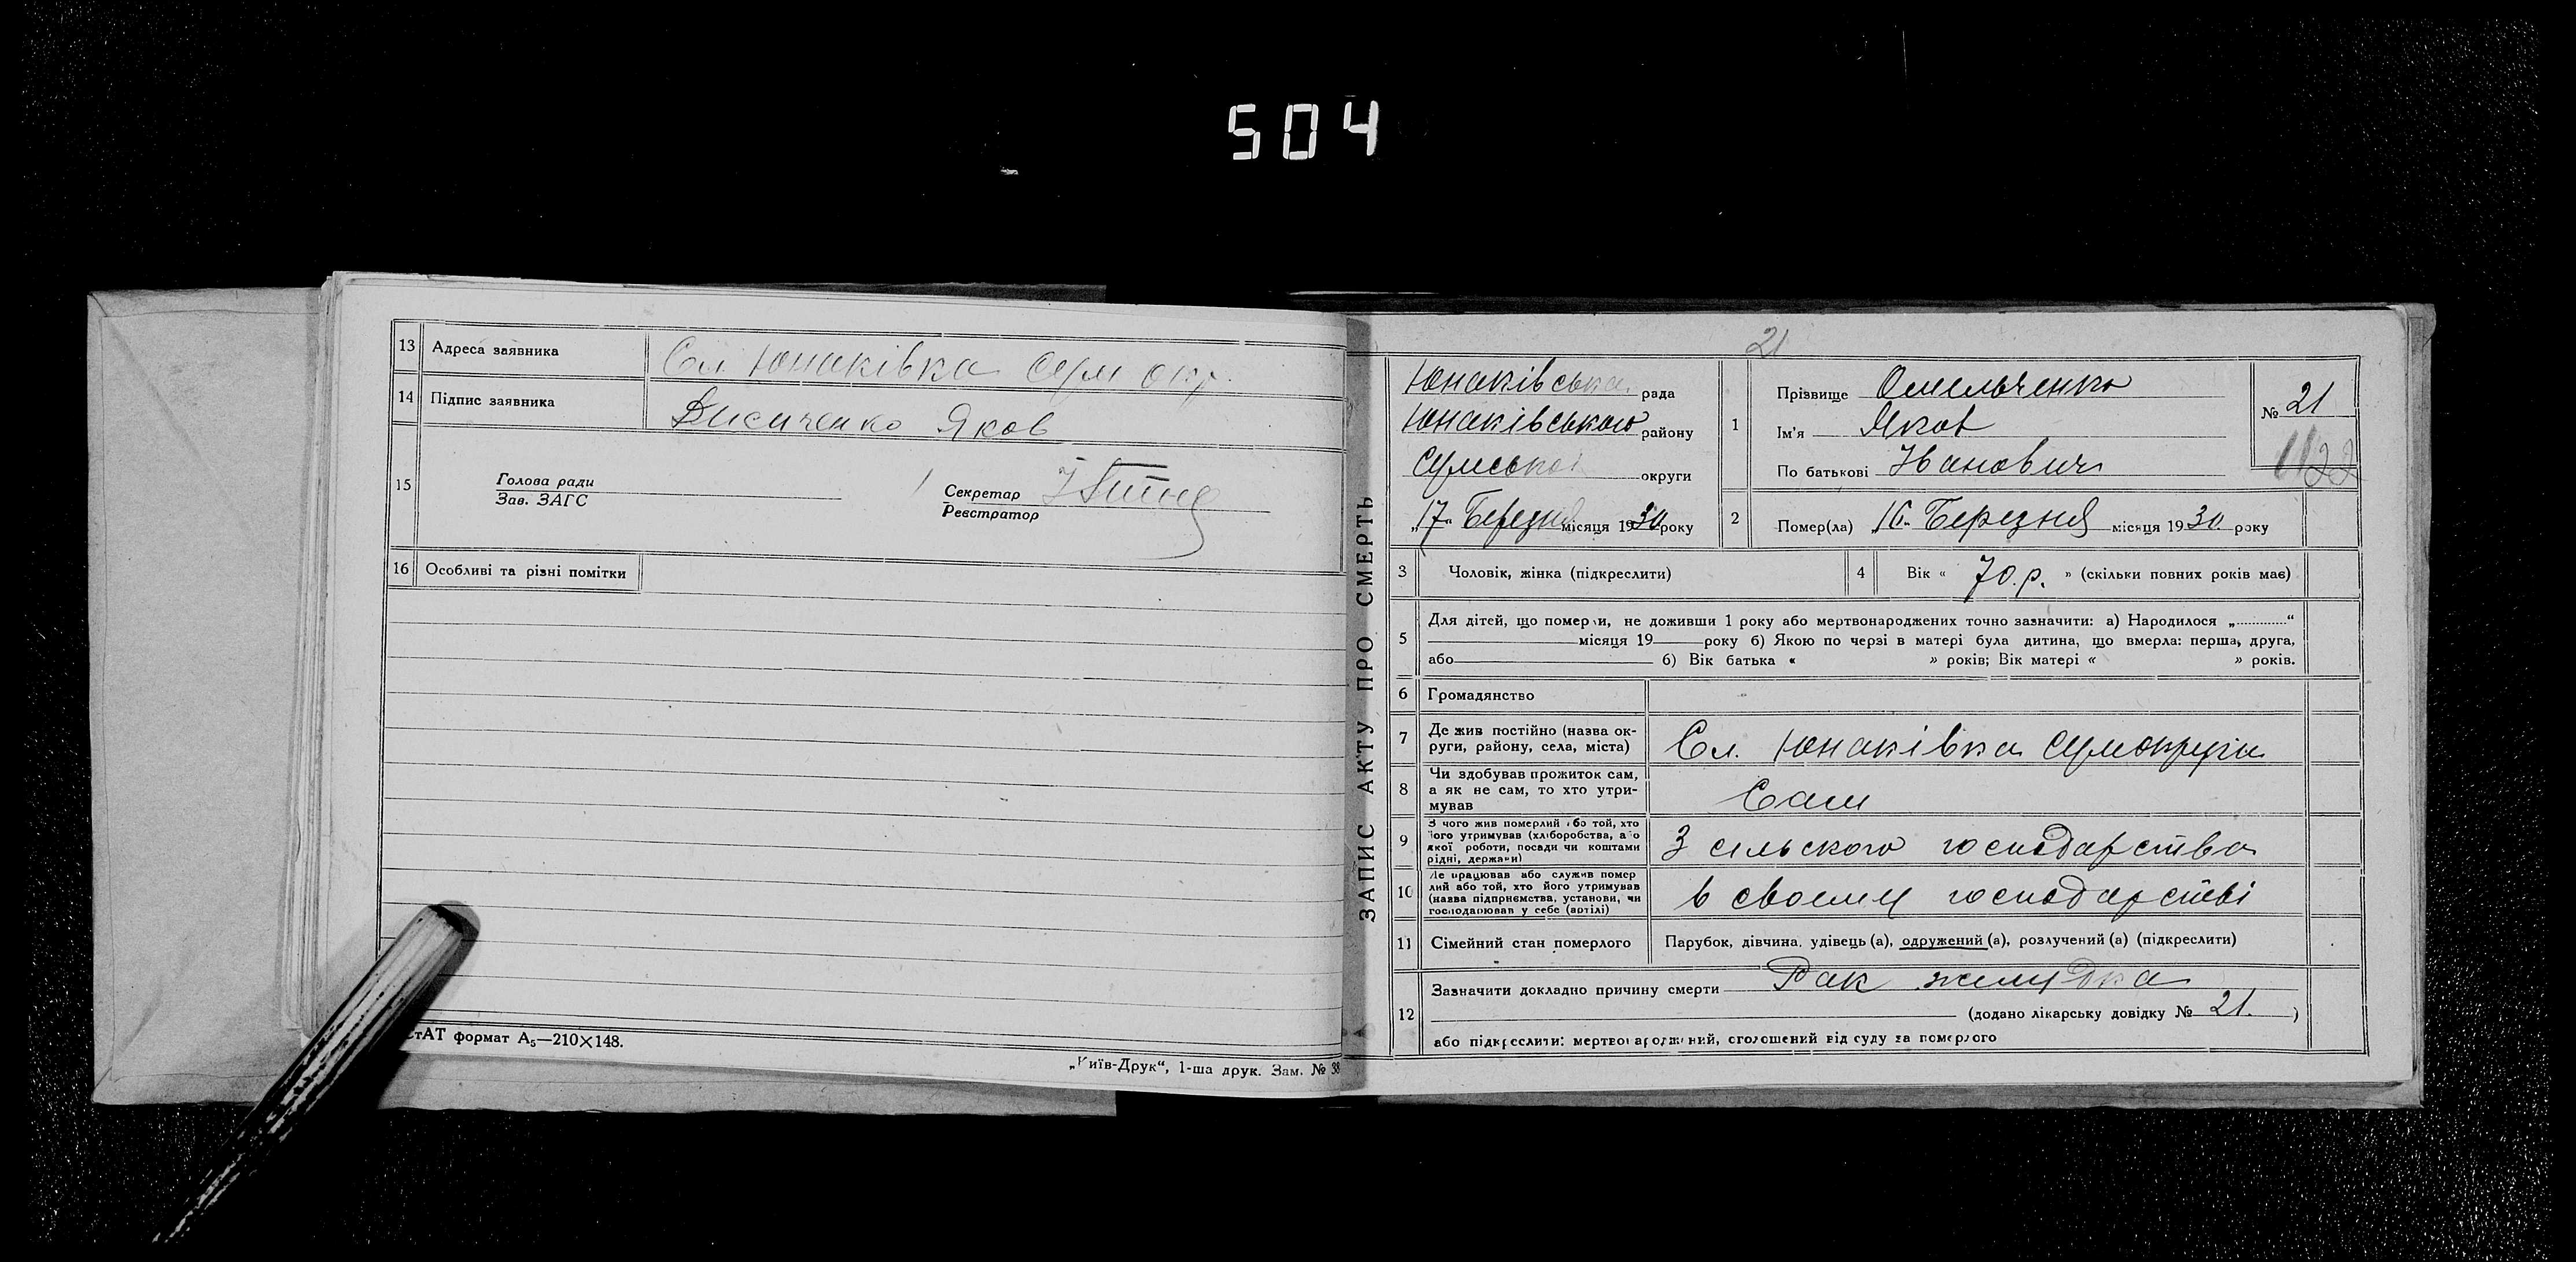 504
13 Адреса заявника Сл Юнаківка Сум окр.
14 Підпис заявника Яков
15 Голова ради
Зав. ЗАГС
Секретар
Реєстратор
16 Особливі та різні помітки
стАТ формат А₅—210×148.
„Київ-Друк“, 1-ша друк. Зам. № 38
ЗАПИС АКТУ ПРО СМЕРТЬ
21
Юнаківська рада
Юнаківського району
Сумської округи
„17“ Березня місяця 1930 року
1 Прізвище Омельченко
Ім'я Яков
По батькові Іванович
№ 21
1122
2 Помер(ла) „16“ Березня місяця 1930 року
3 Чоловік, жінка (підкреслити)
4 Вік « 70.р. » (скільки повних років має)
5 Для дітей, що померли, не доживши 1 року або мертвонароджених точно зазначити: а) Народилося „............“
місяця 19 року б) Якою по черзі в матері була дитина, що вмерла: перша, друга,
або б) Вік батька « » років; Вік матері « » років.
6 Громадянство
7 Де жив постійно (назва ок-
руги, району, села, міста) Сл. Юнаківка Сумокруги
8 Чи здобував прожиток сам,
а як не сам, то хто утри-
мував Сам
9 З чого жив померлий або той, хто
його утримував (хліборобства, або
якої роботи, посади чи коштами
рідні, держави) З сільского господарства
10 Де працював або служив помер
лий або той, хто його утримував
(назва підприємства, установи, чи
господарював у себе (вотілі) в своему господарстві
11 Сімейний стан померлого Парубок, дівчина, удівець (а), одружений (а), розлучений (а) (підкреслити)
12 Зазначити докладно причину смерти Рак желудка
(додано лікарську довідку № 21. )
або підкреслити: мертвонароджений, оголошений від суду за померлого